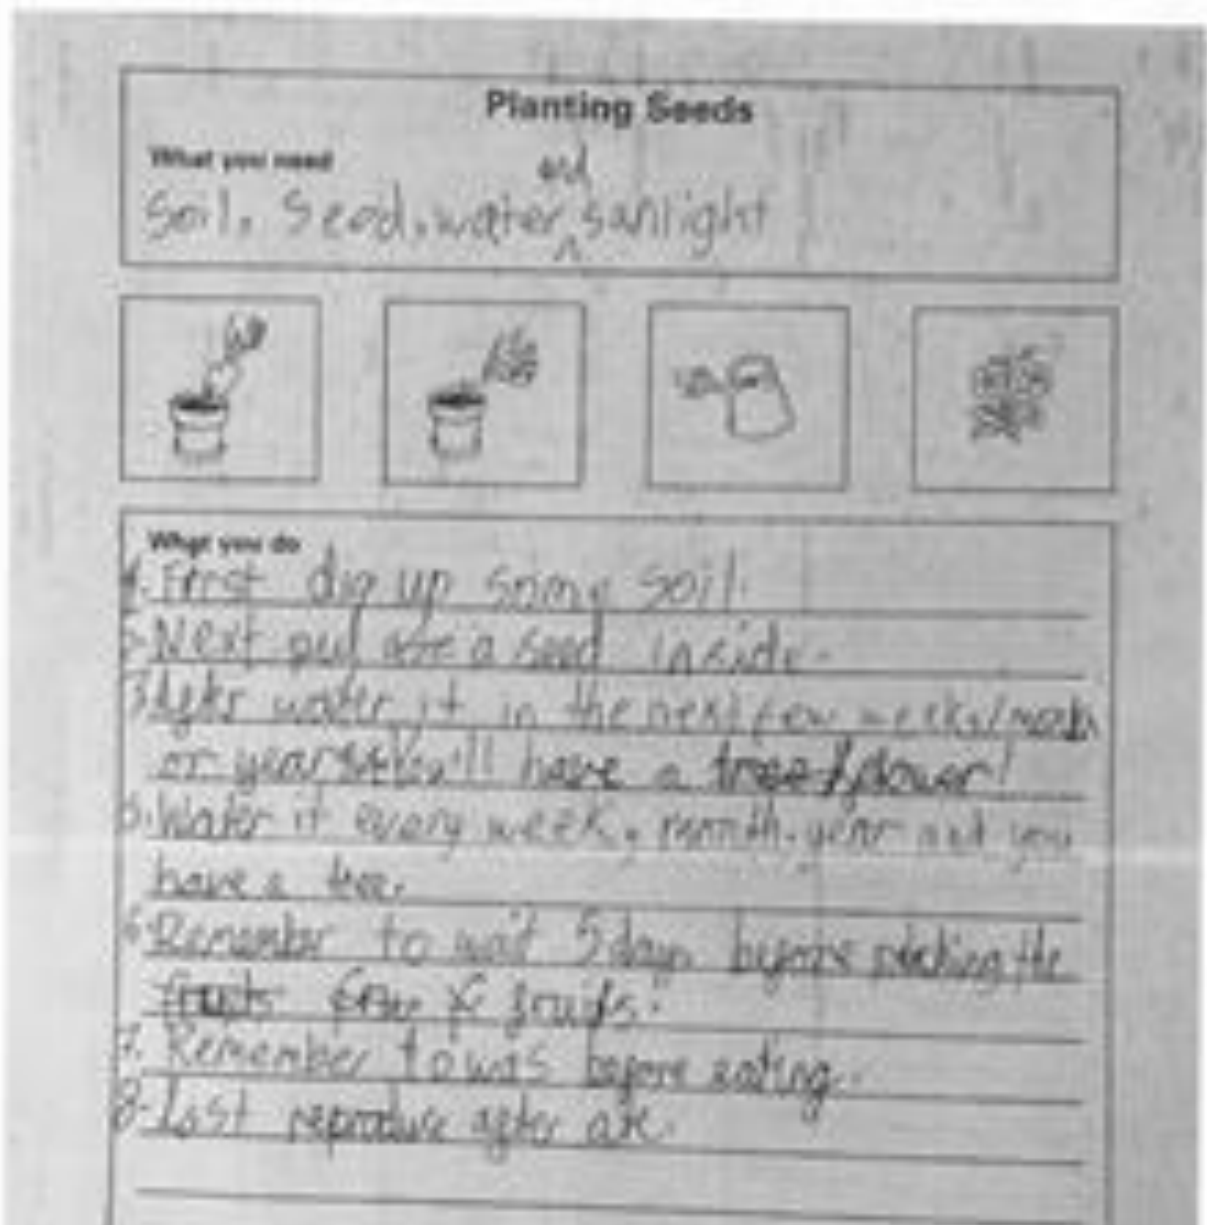 Planting Seeds
What you need
and
Soil, Seed, water sanlight
What you do
1. First dig up some soil.
2. Next put a seed inside.
3. After water it in the next few weeks/months
or years you'll have a tree/flower!
5. Water it every week, month, year and you
have a tree.
6. Remember to wait 5 days before picking the
fruits fruits.
7. Remember to was before eating.
8. Last reproduce after ate.